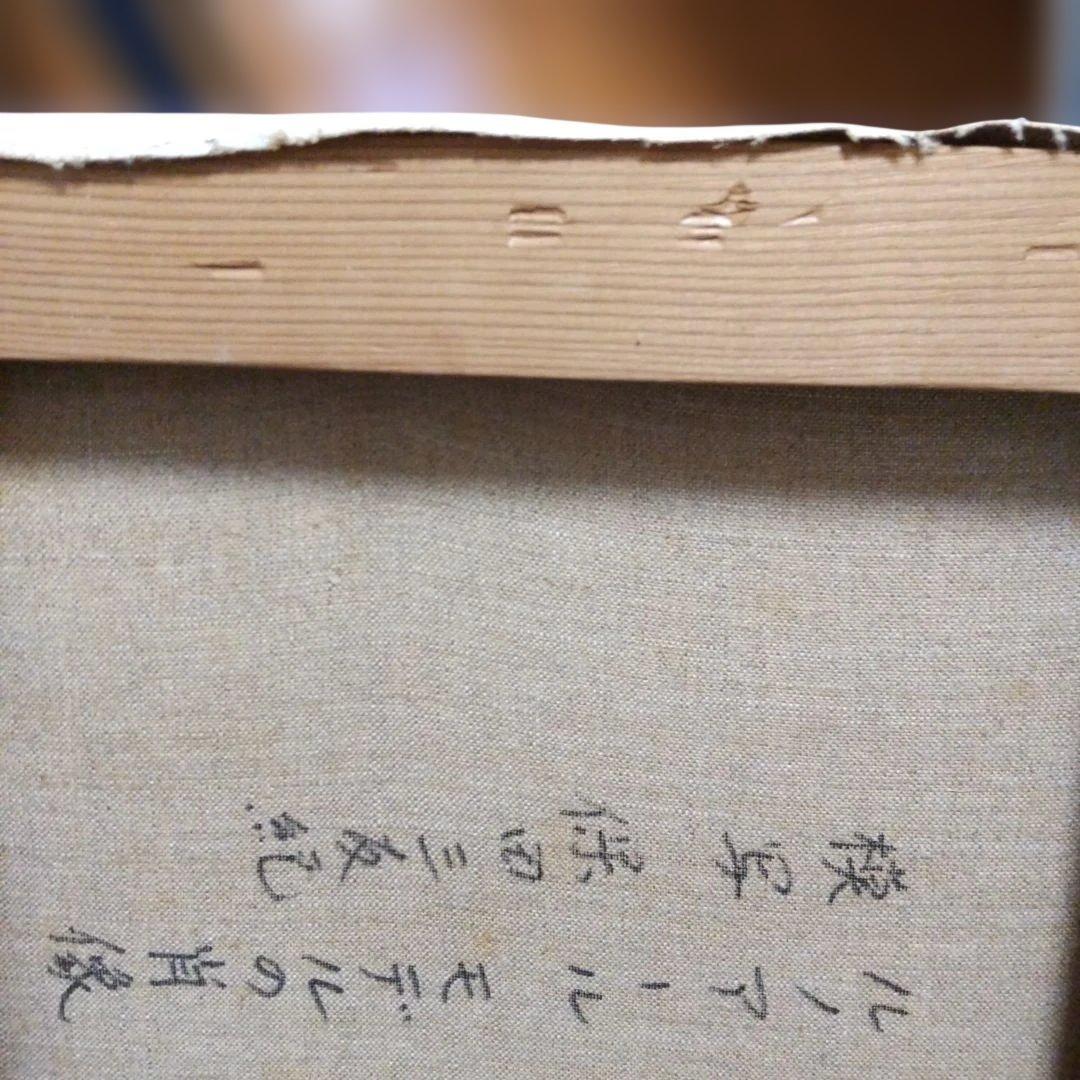 ルノアール モデルの肖像
模写 保田三友紀